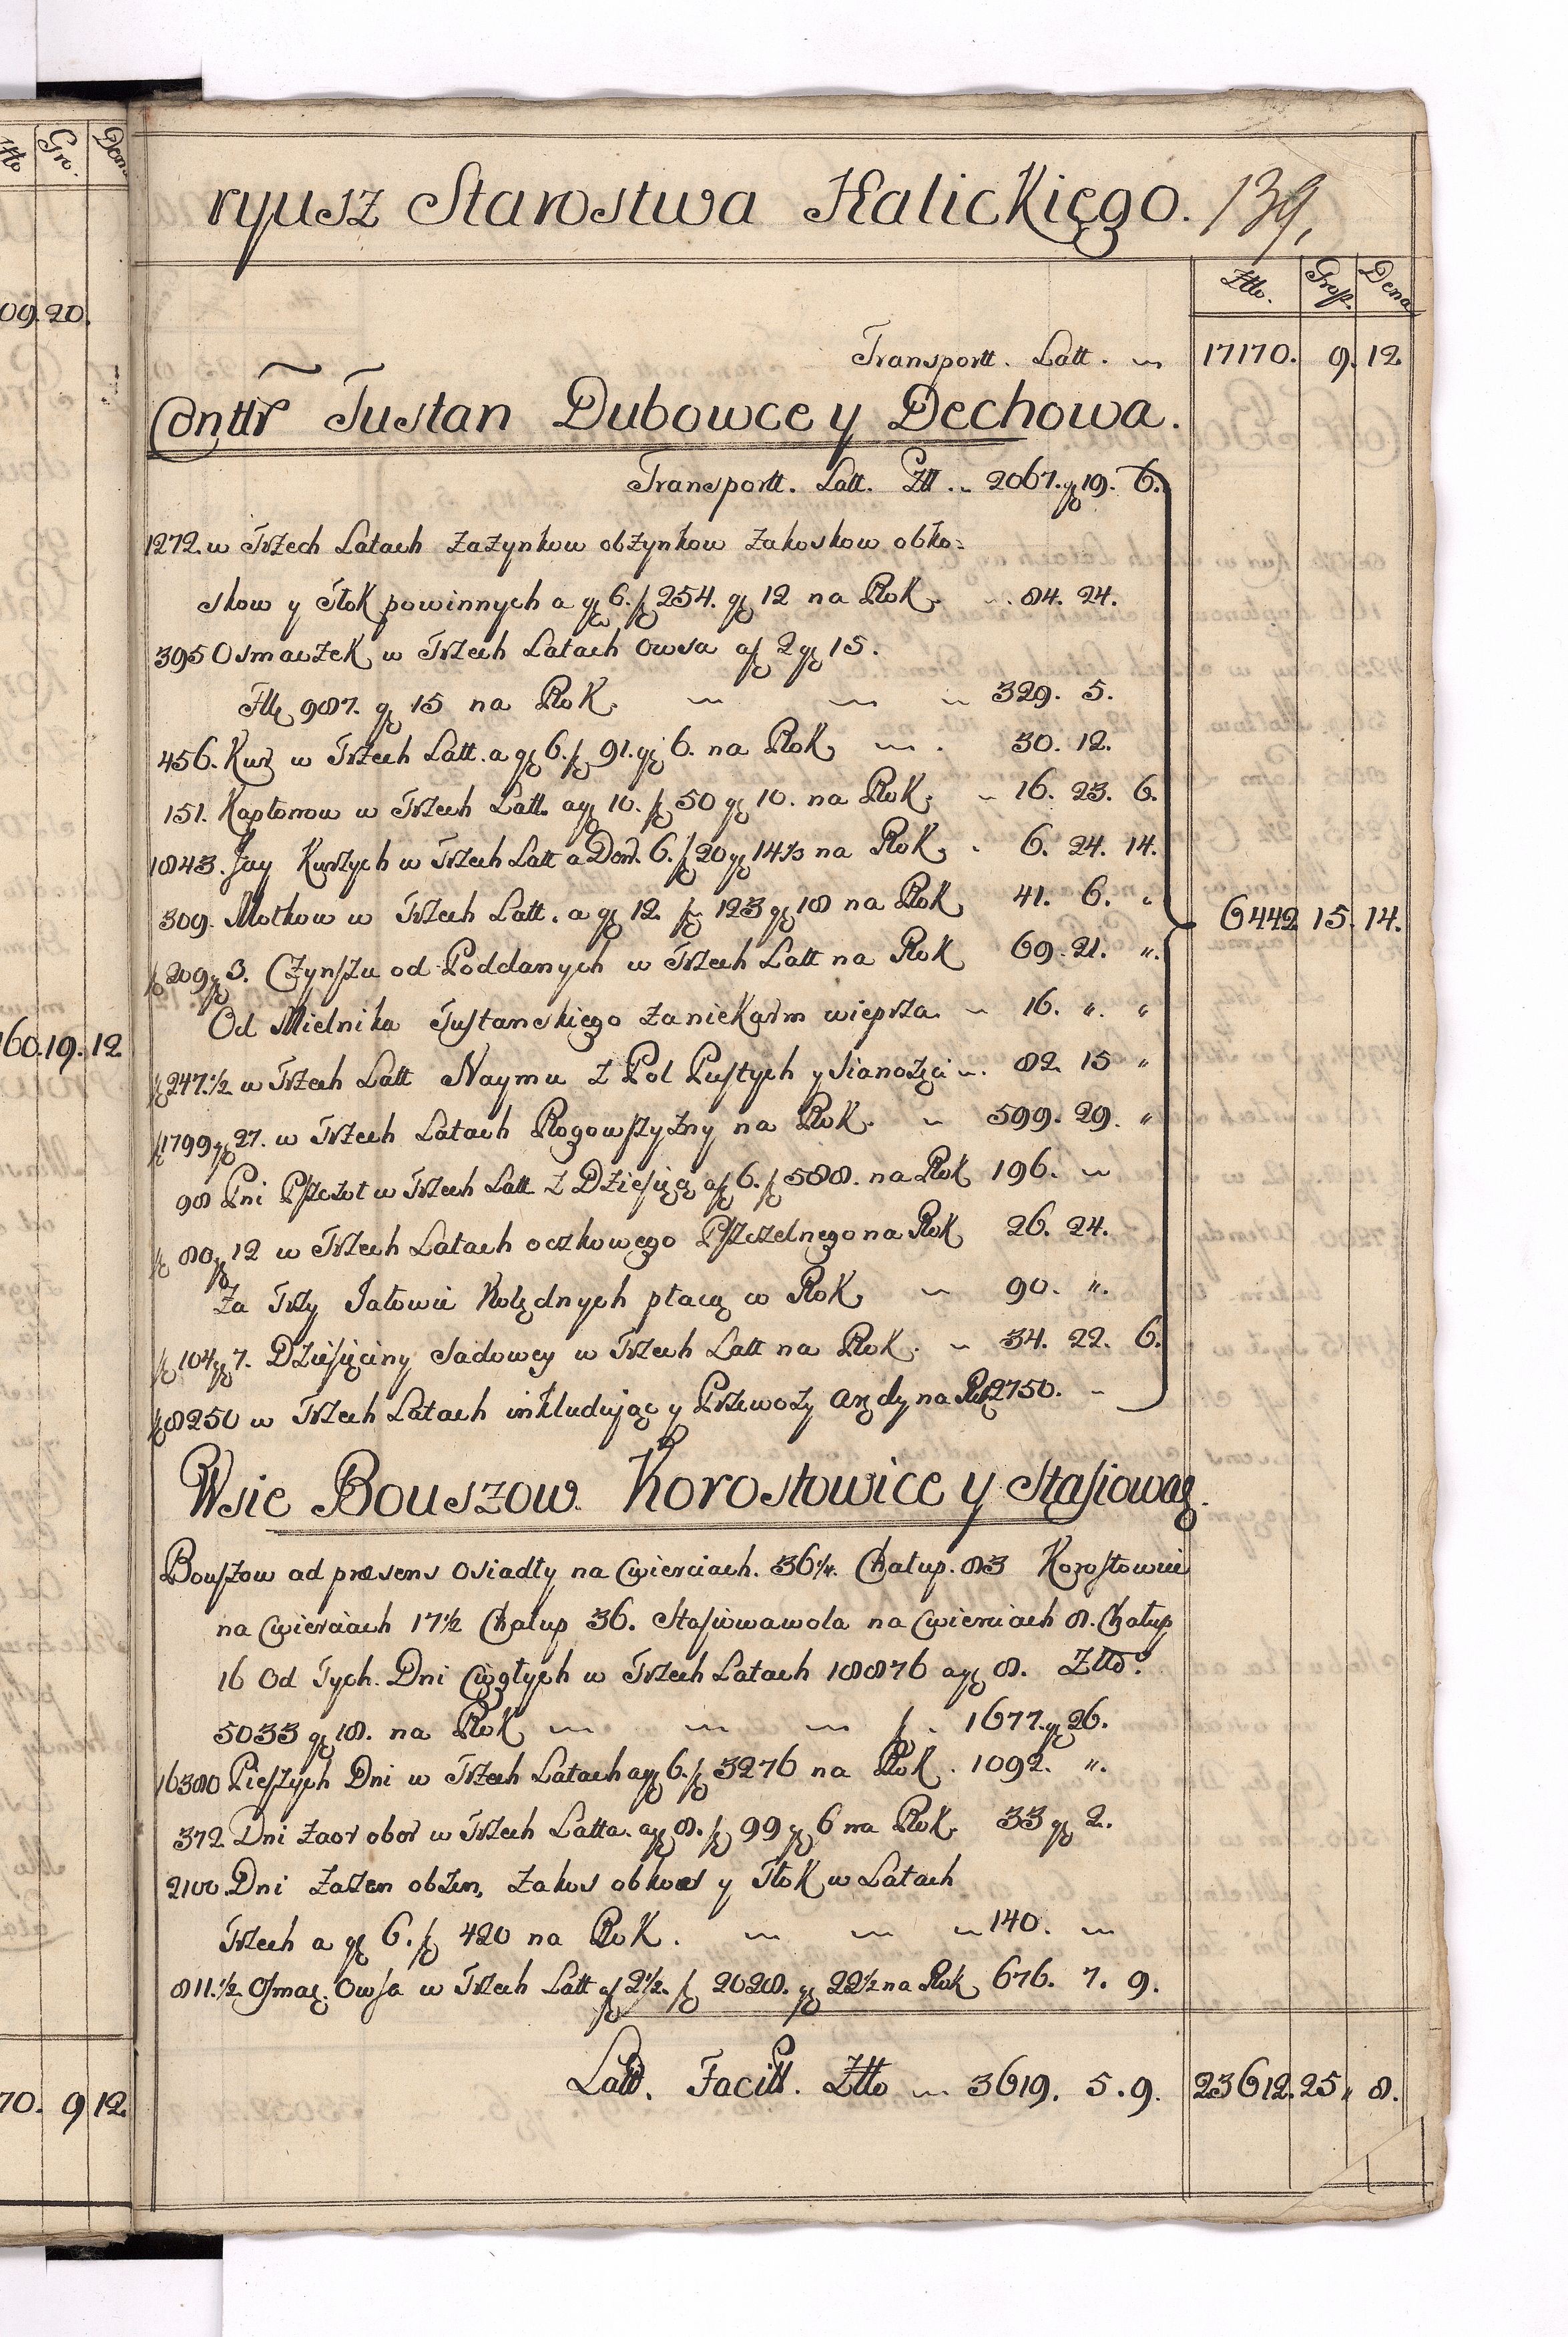 ryusz Starostwa Halickięgo. 139,
Ztto. Grosz. Dena
Transportt. Latt. 17170. 9. 12.
Conttr Tustan Dubowce y Dechowa.
Transportt. Latt. Ztt. 2067. g 19. 6.
1272. w Trzech Latach zazynkow obzynkow zakoskow obko=
skow y Tłok powinnych a g 6. f 254. g 12 na Rok. 84. 24.
395 Osmaczek w Trzech Latach owsa a f 2 g 15.
Ztt 987. g 15 na Rok. 329. 5.
456. Kur w Trzech Latt. a g 6. f 91. g 6. na Rok 30. 12.
151. Kapłonow w Trzech Latt. a g 10. f 50 g 10. na Rok. 16. 23. 6.
1843. Jay Kurzych w Trzech Latt a Den. 6. f 20 g 14 1/3 na Rok. 6. 24. 14.
309. Motkow w Trzech Latt. a g 12. f 123 g 18 na Rok 41. 6. "
f 209 g 3. Czynszu od Poddanych w Trzech Latt na Rok 69. 21. "
Od Mielnika Tustanskiego za nie Karm wieprza. 16. ". "
f 247. 1/2 w Trzech Latt Naymu z Pol Pustych y Sianozęci. 82. 15 "
f 1799 g 27. w Trzech Latach Rogowszyzny na Rok. 599. 29. "
98 Pni Pszczoł w Trzech Latt z Dziesięcį a f 6. f 588. na Rok 196.
f 80 g 12 w Trzech Latach oczkowego Pszczelnego na Rok 26. 24.
Za Trzy Jałowic Kolędnych płacą w Rok 90. ".
f 104 g 7. Dziesięciny Sadowey w Trzech Latt na Rok. 34. 22. 6.
f 8250 w Trzech Latach inkludując y Przewozy Arędy na Rok 2750.
6442 15. 14.
Wsie Bouszow. Korostowice y Stasiowa
Bouszow ad præsens osiadły na Cwierciach. 36 1/4. Chałup. 83 Korostowice
na Cwierciach 17 1/2 Chałup 36. Stasiowawola na Cwierciach 8. Chałup
16 Od Tych. Dni Ciągłych w Trzech Latach 18876 a g 8. Ztto.
5033 g 18. na Rok f. 1677. g 26.
16380 Pieszych Dni w Trzech Latach a g 6. f 3276 na Rok. 1092. ".
372 Dni zaor obor w Trzech Latta. a g 8. f 99 g 6 na Rok. 33 g 2.
2100. Dni zazen obzen, zakos obkos y Tłok w Latach
Trzech a g 6. f 420 na Rok. 140.
811. 1/2 Osmacz. Owsa w Trzech Latt a f 2 1/2. f 2028. g 22 1/2 na Rok 676. 7. 9.
Latt. Facitt. Ztto 3619. 5. 9. 23612. 25 " 8.